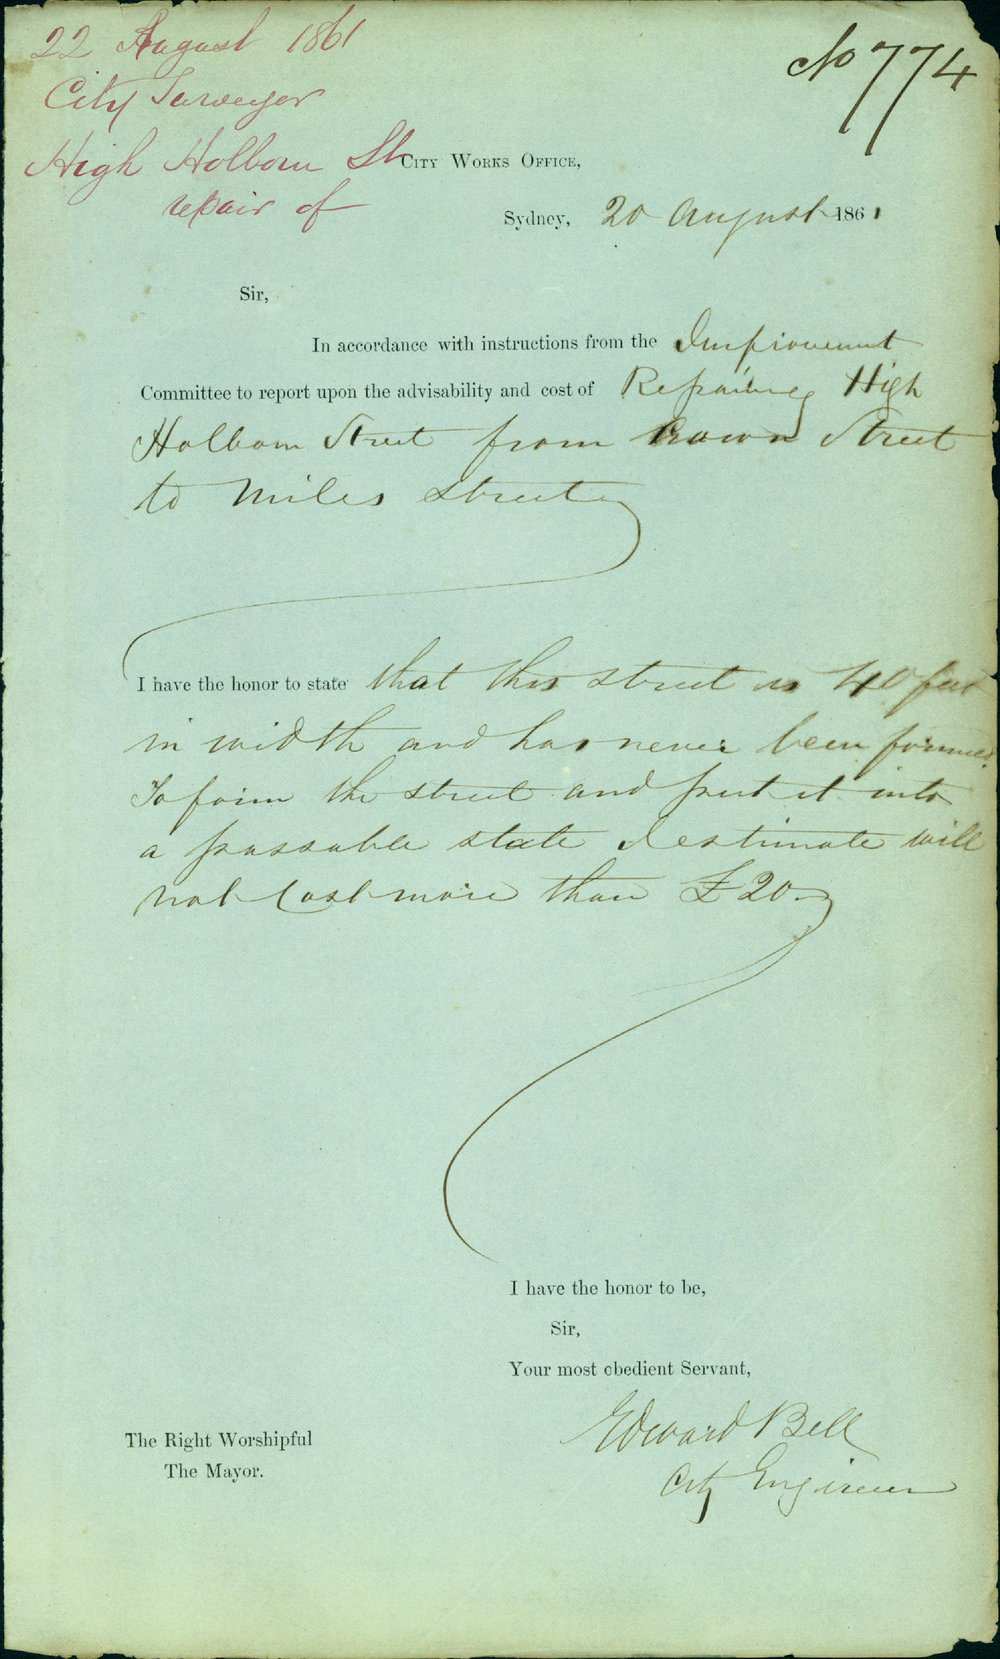 22 August 1861
City Surveyor
High Holborn St
repair of
No 774
City Works Office,
Sydney, 20 August 1861
Sir,
In accordance with instructions from the Improvement
Committee to report upon the advisability and cost of Repairing High
Holborn Street from Crown Street
to Miles Street
I have the honor to state that this street is 40 feet
in width and has never been formed.
To form the street and put it into
a passable state I estimate will
not cost more than £20.
I have the honor to be,
Sir,
Your most obedient Servant,
Edward Bell
City Engineer
The Right Worshipful
The Mayor.